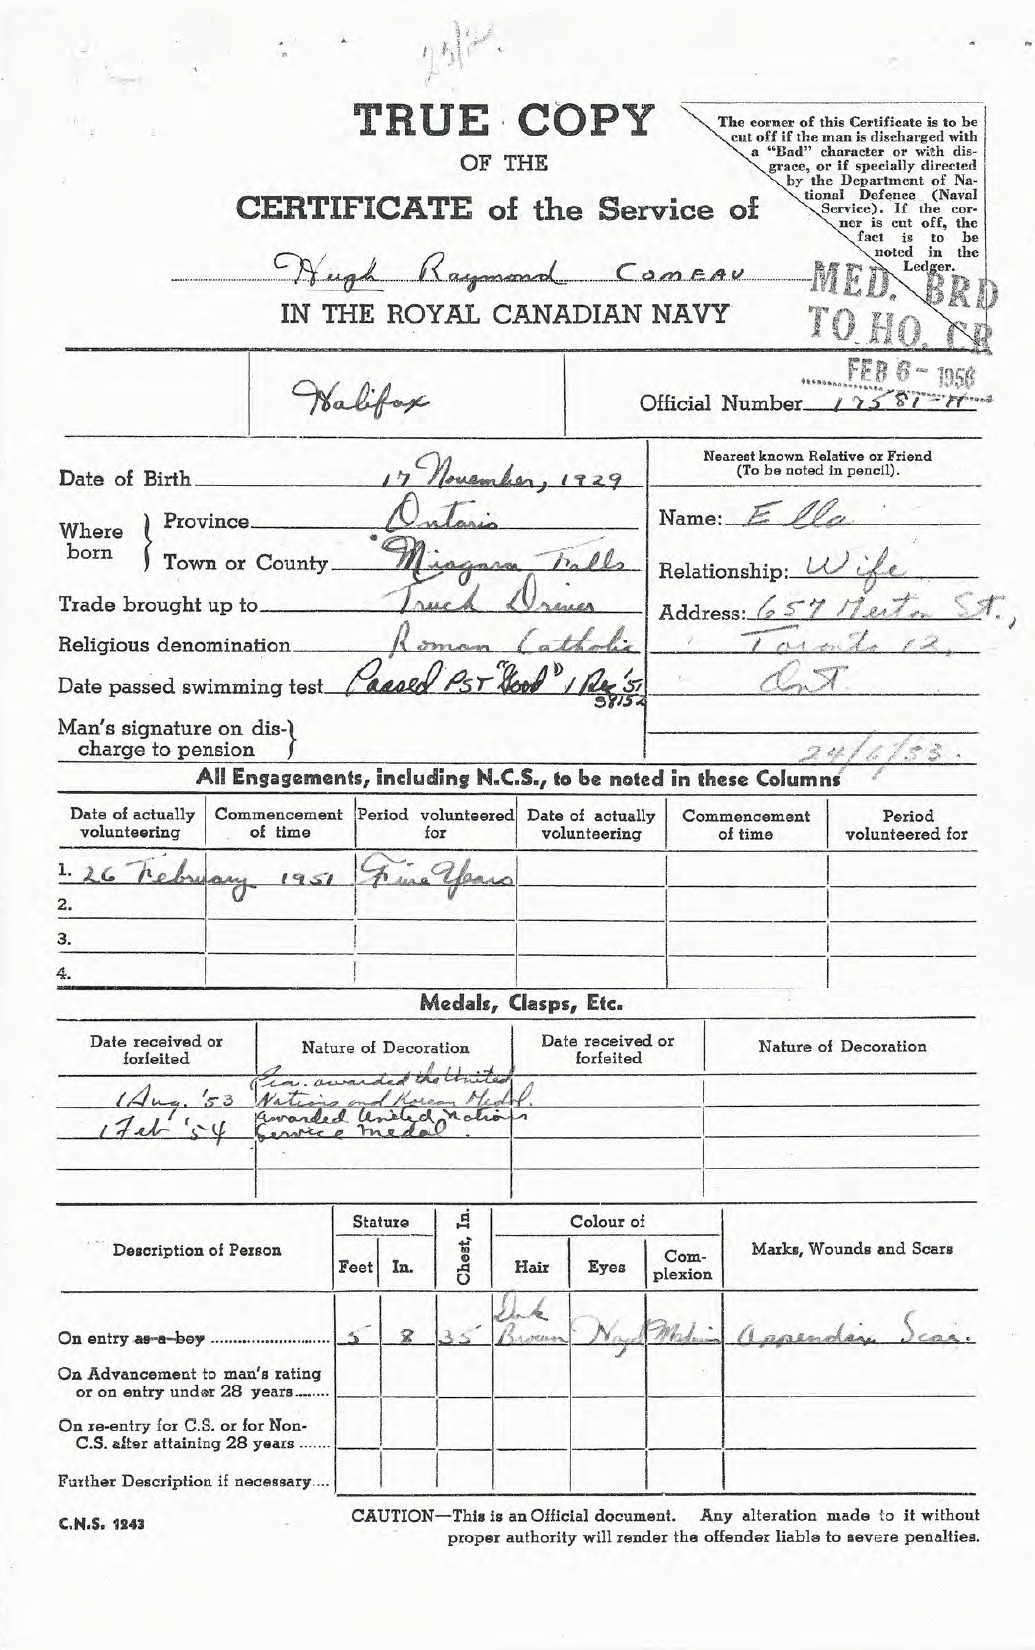 25/2.
TRUE COPY
OF THE
CERTIFICATE of the Service of
Hugh Raymond COMEAU
IN THE ROYAL CANADIAN NAVY
The corner of this Certificate is to be
cut off if the man is discharged with
a "Bad" character or with dis-
grace, or if specially directed
by the Department of Na-
tional Defence (Naval
Service). If the cor-
ner is cut off, the
fact is to be
noted in the
Ledger.
MED. BRD
TO HQ. CR
FEB 6 - 1956
Halifax
Official Number 17581-H
Date of Birth 17 November, 1929
Where born
Province Ontario
Town or County Niagara Falls
Trade brought up to Truck Driver
Religious denomination Roman Catholic
Date passed swimming test Passed PST "Good" 1 Dec '51
S8152
Man's signature on dis-
charge to pension
Nearest known Relative or Friend
(To be noted in pencil).
Name: Ella
Relationship: Wife
Address: 657 Merton St.,
Toronto 12,
Ont.
24/6/53.
All Engagements, including N.C.S., to be noted in these Columns
Date of actually volunteering
Commencement of time
Period volunteered for
Date of actually volunteering
Commencement of time
Period volunteered for
1. 26 February 1951 Five Years
2.
3.
4.
Medals, Clasps, Etc.
Date received or forfeited
Nature of Decoration
Date received or forfeited
Nature of Decoration
1 Aug. '53 awarded the United
Nations and Korean Medal.
1 Feb '54 Awarded United Nations
Service Medal.
Description of Person
Stature
Feet In.
Chest, In.
Colour of
Hair Eyes Com-
plexion
Marks, Wounds and Scars
On entry as a boy 5 8 35 Dark Brown Hazel Medium Appendix Scar.
On Advancement to man's rating
or on entry under 28 years
On re-entry for C.S. or for Non-
C.S. after attaining 28 years
Further Description if necessary
C.N.S. 1243
CAUTION—This is an Official document. Any alteration made to it without
proper authority will render the offender liable to severe penalties.